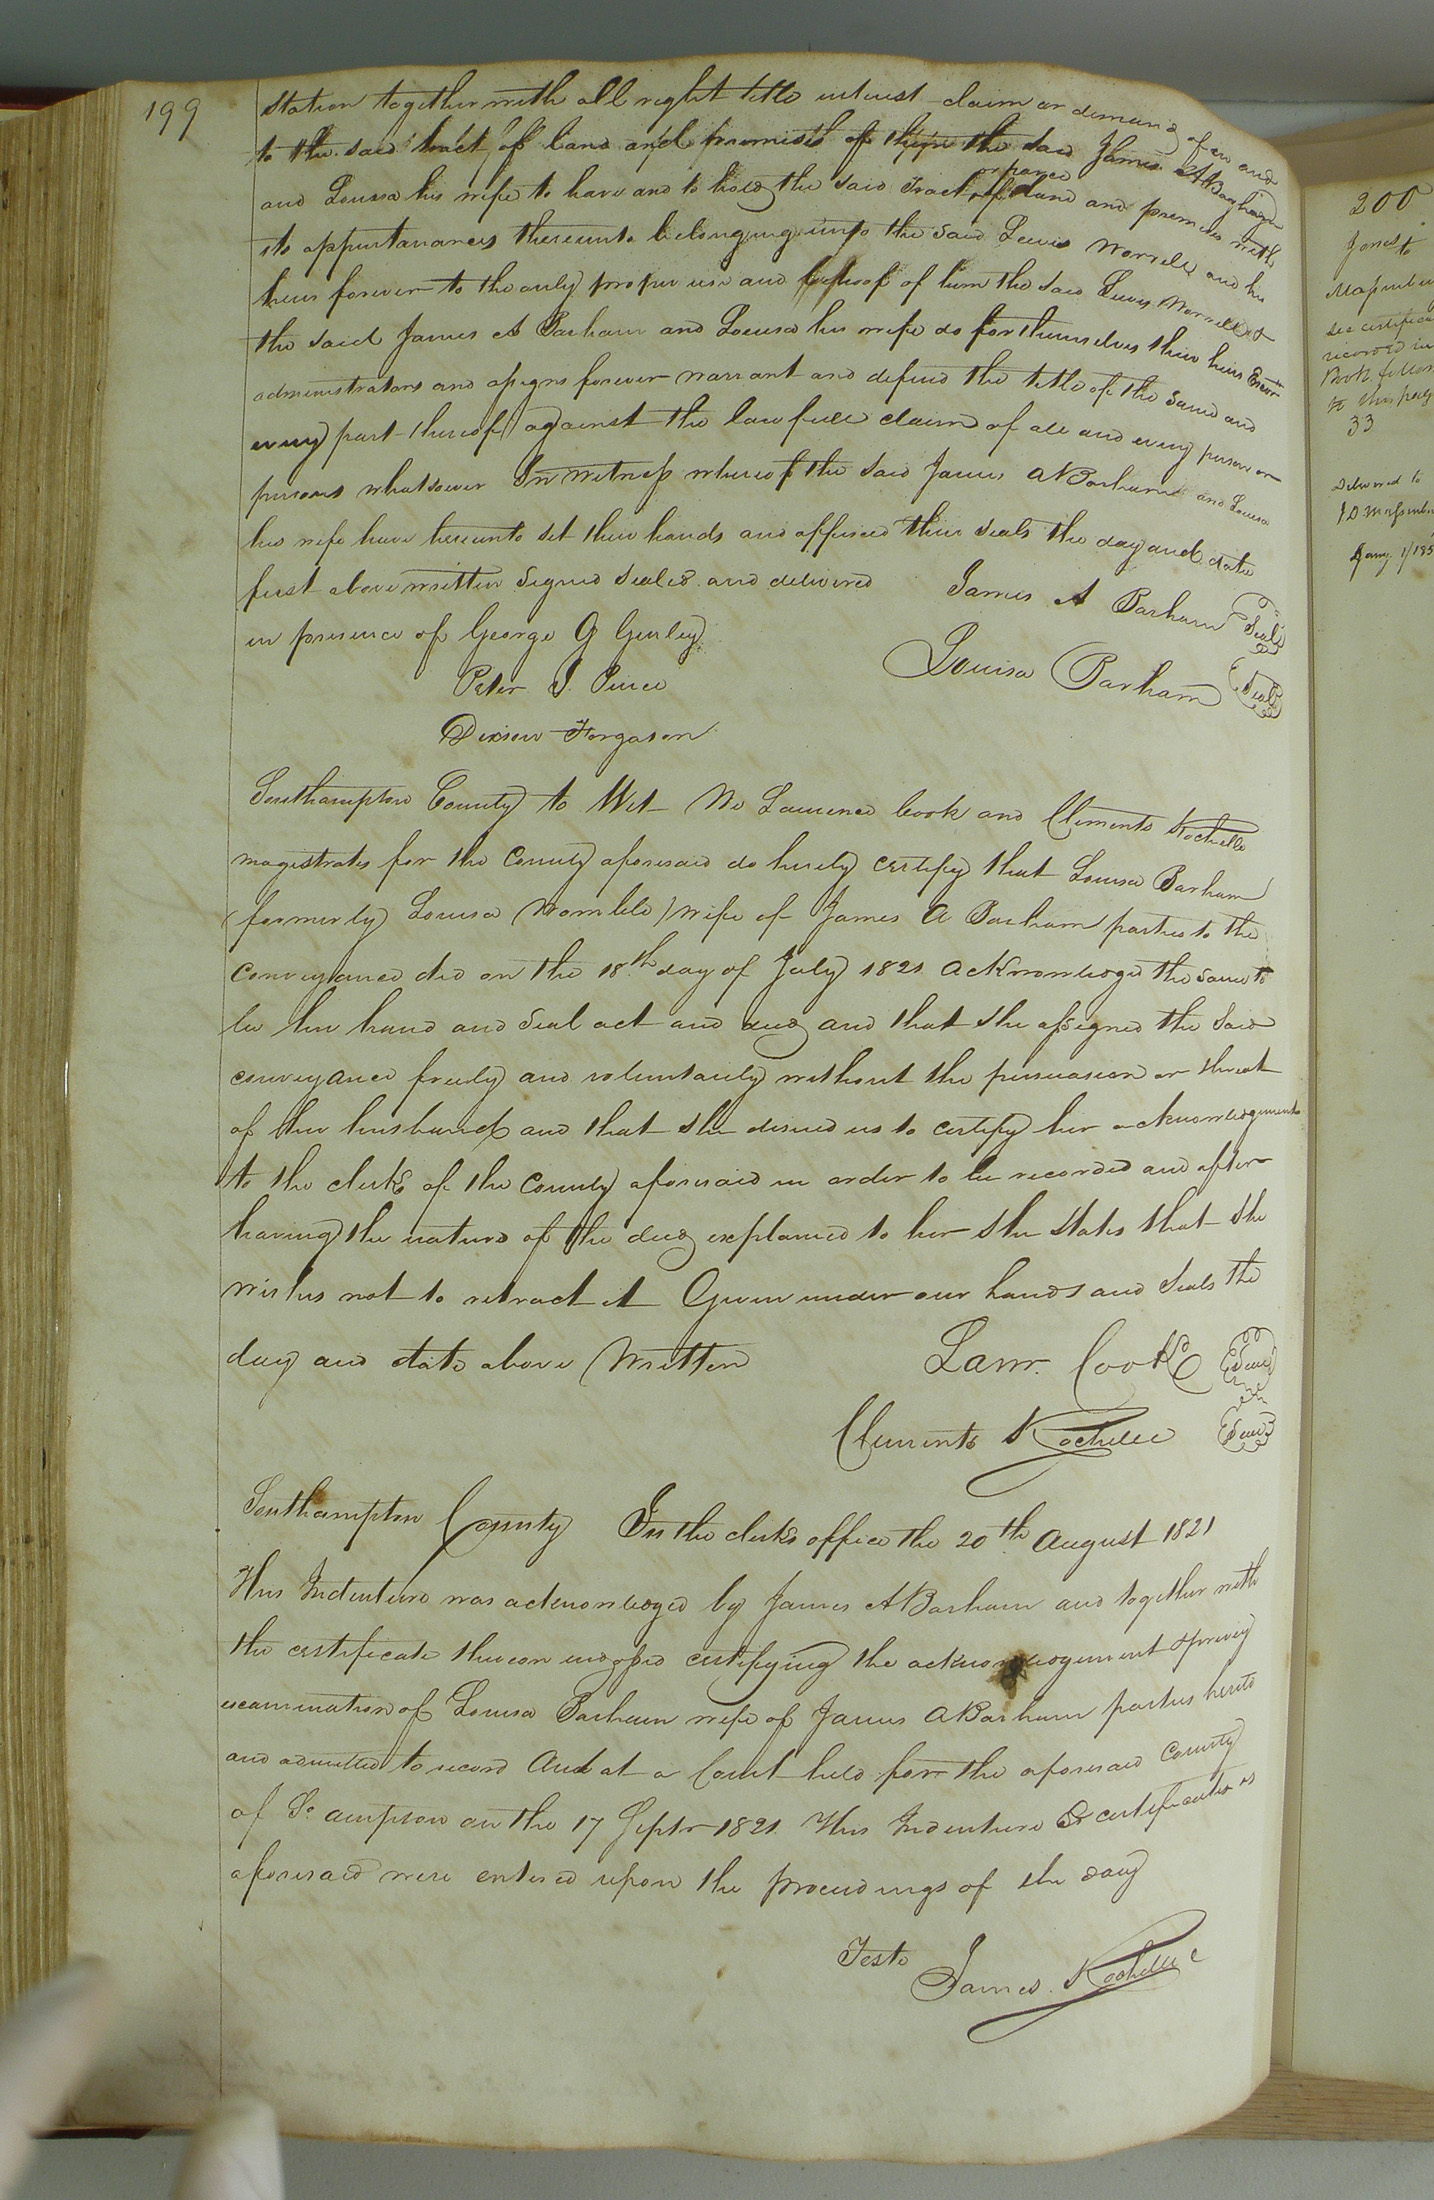 199
station together with all right title interest claim or demand of in and
to the said tract of land and premises of them the said James A Barham
and Louisa his wife to have and to hold the said tract or parcel of Land and premises with
its appurtanances thereunto belonging unto the said Lewis Worrell and his
heirs forever to the only proper use and behoof of him the said Lewis Worrell &
the said James A Barham and Louisa his wife do for themselves their heirs Execors
administrators and assigns forever warrant and defend the title of the same and
every part thereof against the law full claim of all and every person or
persons whatsoever In witness whereof the said James A Barham and Louisa
his wife have hereunto set their hands and affixed their seals the day and date
first above written Signed Sealed and delivered James A Barham Seal
in presence of George G Gurley
Louisa Barham Seal
Peter J. Peirce
Dixson Forgason
Southampton County to Wit We Laurence Cook and Clements Rochelle
magistrates for the County aforesaid do hereby certify that Louisa Barham
(formerly Louisa Womble) wife of James A Barham parties to the
conveyance did on the 18th day of July 1821 acknowledge the same to
be her hand and seal act and deed and that she assigned the said
conveyance freely and voluntarily without the persuasion or threat
of her husband and that she desired us to certify her acknowledgment
to the clerk of the County aforesaid in order to be recorded and after
having the nature of the deed explained to her she states that she
wishes not to retract it Given under our hands and seals the
day and date above Written Lawr. Cook Seal
Clements Rochelle Seal
Southampton County In the clerks office the 20th August 1821
This Indenture was acknowledged by James A Barham and together with
the certificate thereon endorsed certifying the acknowledgment & privey
examination of Louisa Barham wife of James A Barham parties hereto
and admitted to record And at a Court held for the aforesaid County
of So ampton on the 17 Septr 1821 This Indenture & certificates as
aforesaid were entered upon the proceedings of the day
Teste James Rochelle
200
Jones
to
see certificate
recorded in
Book
to this page
33
Delivered to
Jany 1/183